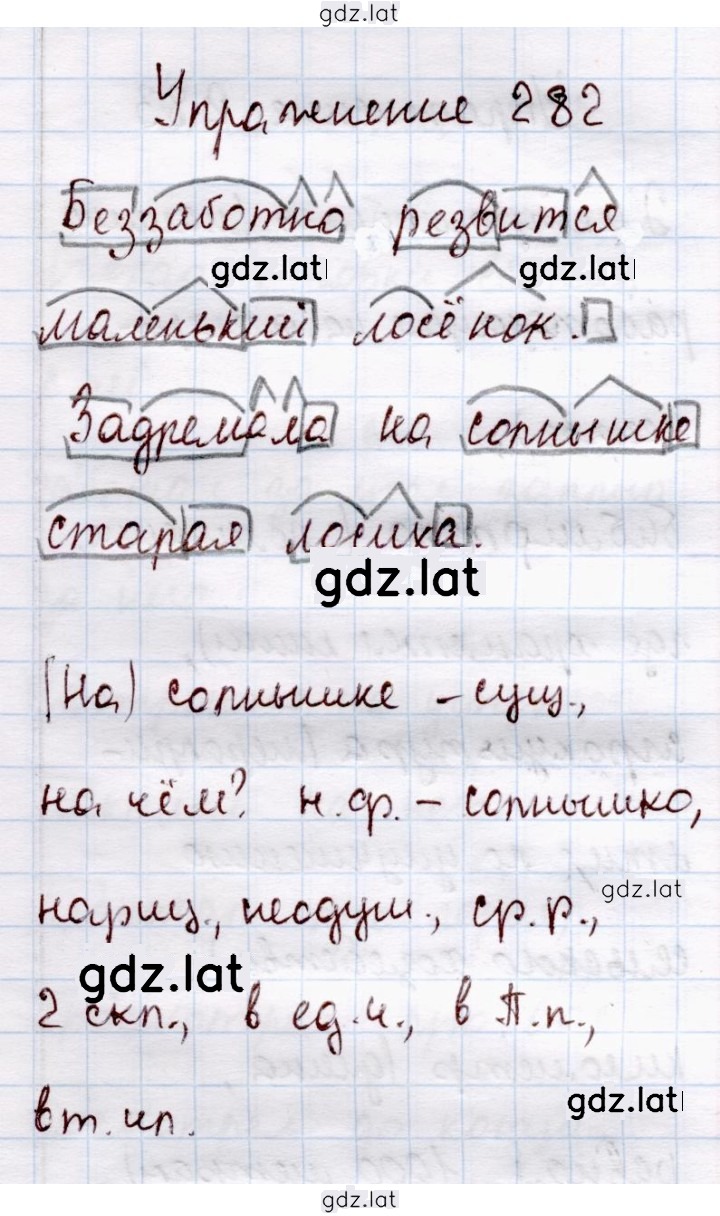 gdz.lat
Упражнение 282
Беззаботно резвится
gdz.lat gdz.lat
маленький лосёнок.
Задремала на солнышке
старая лосиха.
gdz.lat
(На) солнышке – сущ.,
на чём? н.ф. – солнышко,
gdz.lat
нариц., неодуш., ср.р.,
gdz.lat
2 скл., в ед.ч., в П.п.,
gdz.lat
вт. чл.
gdz.lat